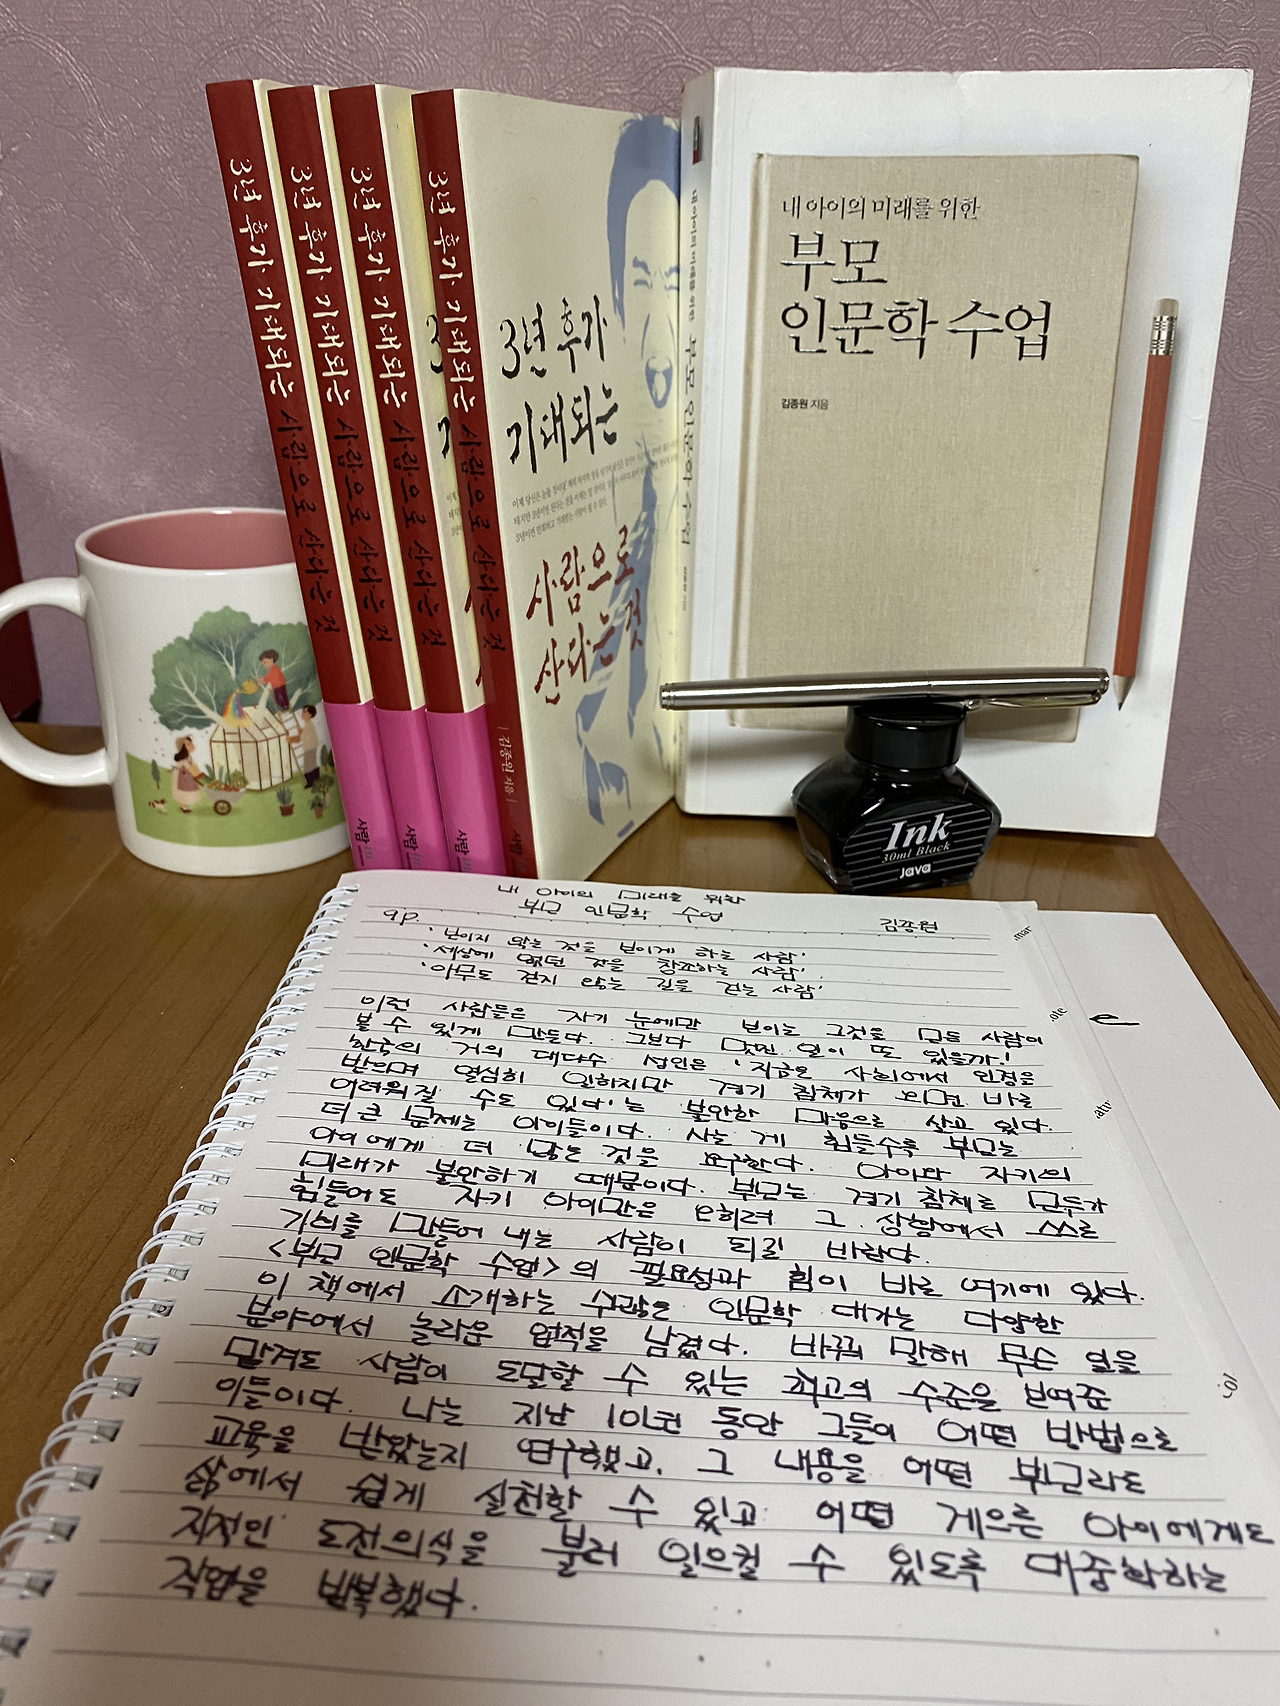 3년 후가 기대되는 사람으로 산다는 것
3년 후가 기대되는 사람으로 산다는 것
3년 후가 기대되는 사람으로 산다는 것
3년 후가 기대되는 사람으로 산다는 것
| 김종원 지음 |
사람in
사람in
사람in
3년 후가
기대되는
사람으로
산다는 것
내 아이의 미래를 위한 부모 인문학 수업
내 아이의 미래를 위한
부모
인문학 수업
김종원 지음
Ink
30ml Black
Java
내 아이의 미래를 위한
부모 인문학 수업
김종원
9p.
'보이지 않는 것을 보이게 하는 사람'
'세상에 없던 것을 창조하는 사람'
'아무도 걷지 않는 길을 걷는 사람'
이런 사람들은 자기 눈에만 보이는 그것을 모든 사람이
볼 수 있게 만든다. 그보다 멋진 일이 또 있을까!
한국의 거의 대다수 성인은 '지금은 사회에서 인정을
받으며 열심히 일하지만 경기 침체가 되면 바로
어려워질 수도 있다'는 불안한 마음으로 살고 있다.
더 큰 문제는 아이들이다. 사는 게 힘들수록 부모는
아이에게 더 많은 것을 요구한다. 아이만 자기의
미래가 불안하기 때문이다. 부모는 경기 침체로 모두가
힘들어도 자기 아이만은 오히려 그 상황에서 스스로
기회를 만들어 내는 사람이 되길 바란다.
<부모 인문학 수업>의 필요성과 힘이 바로 여기에 있다.
이 책에서 소개하는 수많은 인문학 대가는 다양한
분야에서 놀라운 업적을 남겼다. 바꿔 말해 무슨 일을
맡겨도 사람이 도달할 수 있는 최고의 수준을 보여준
이들이다. 나는 지난 10년 동안 그들이 어떤 방법으로
교육을 받았는지 연구했고, 그 내용을 어떤 부모라도
삶에서 쉽게 실천할 수 있고 어떤 게으른 아이에게도
지적인 도전의식을 불러 일으킬 수 있도록 대중화하는
작업을 반복했다.